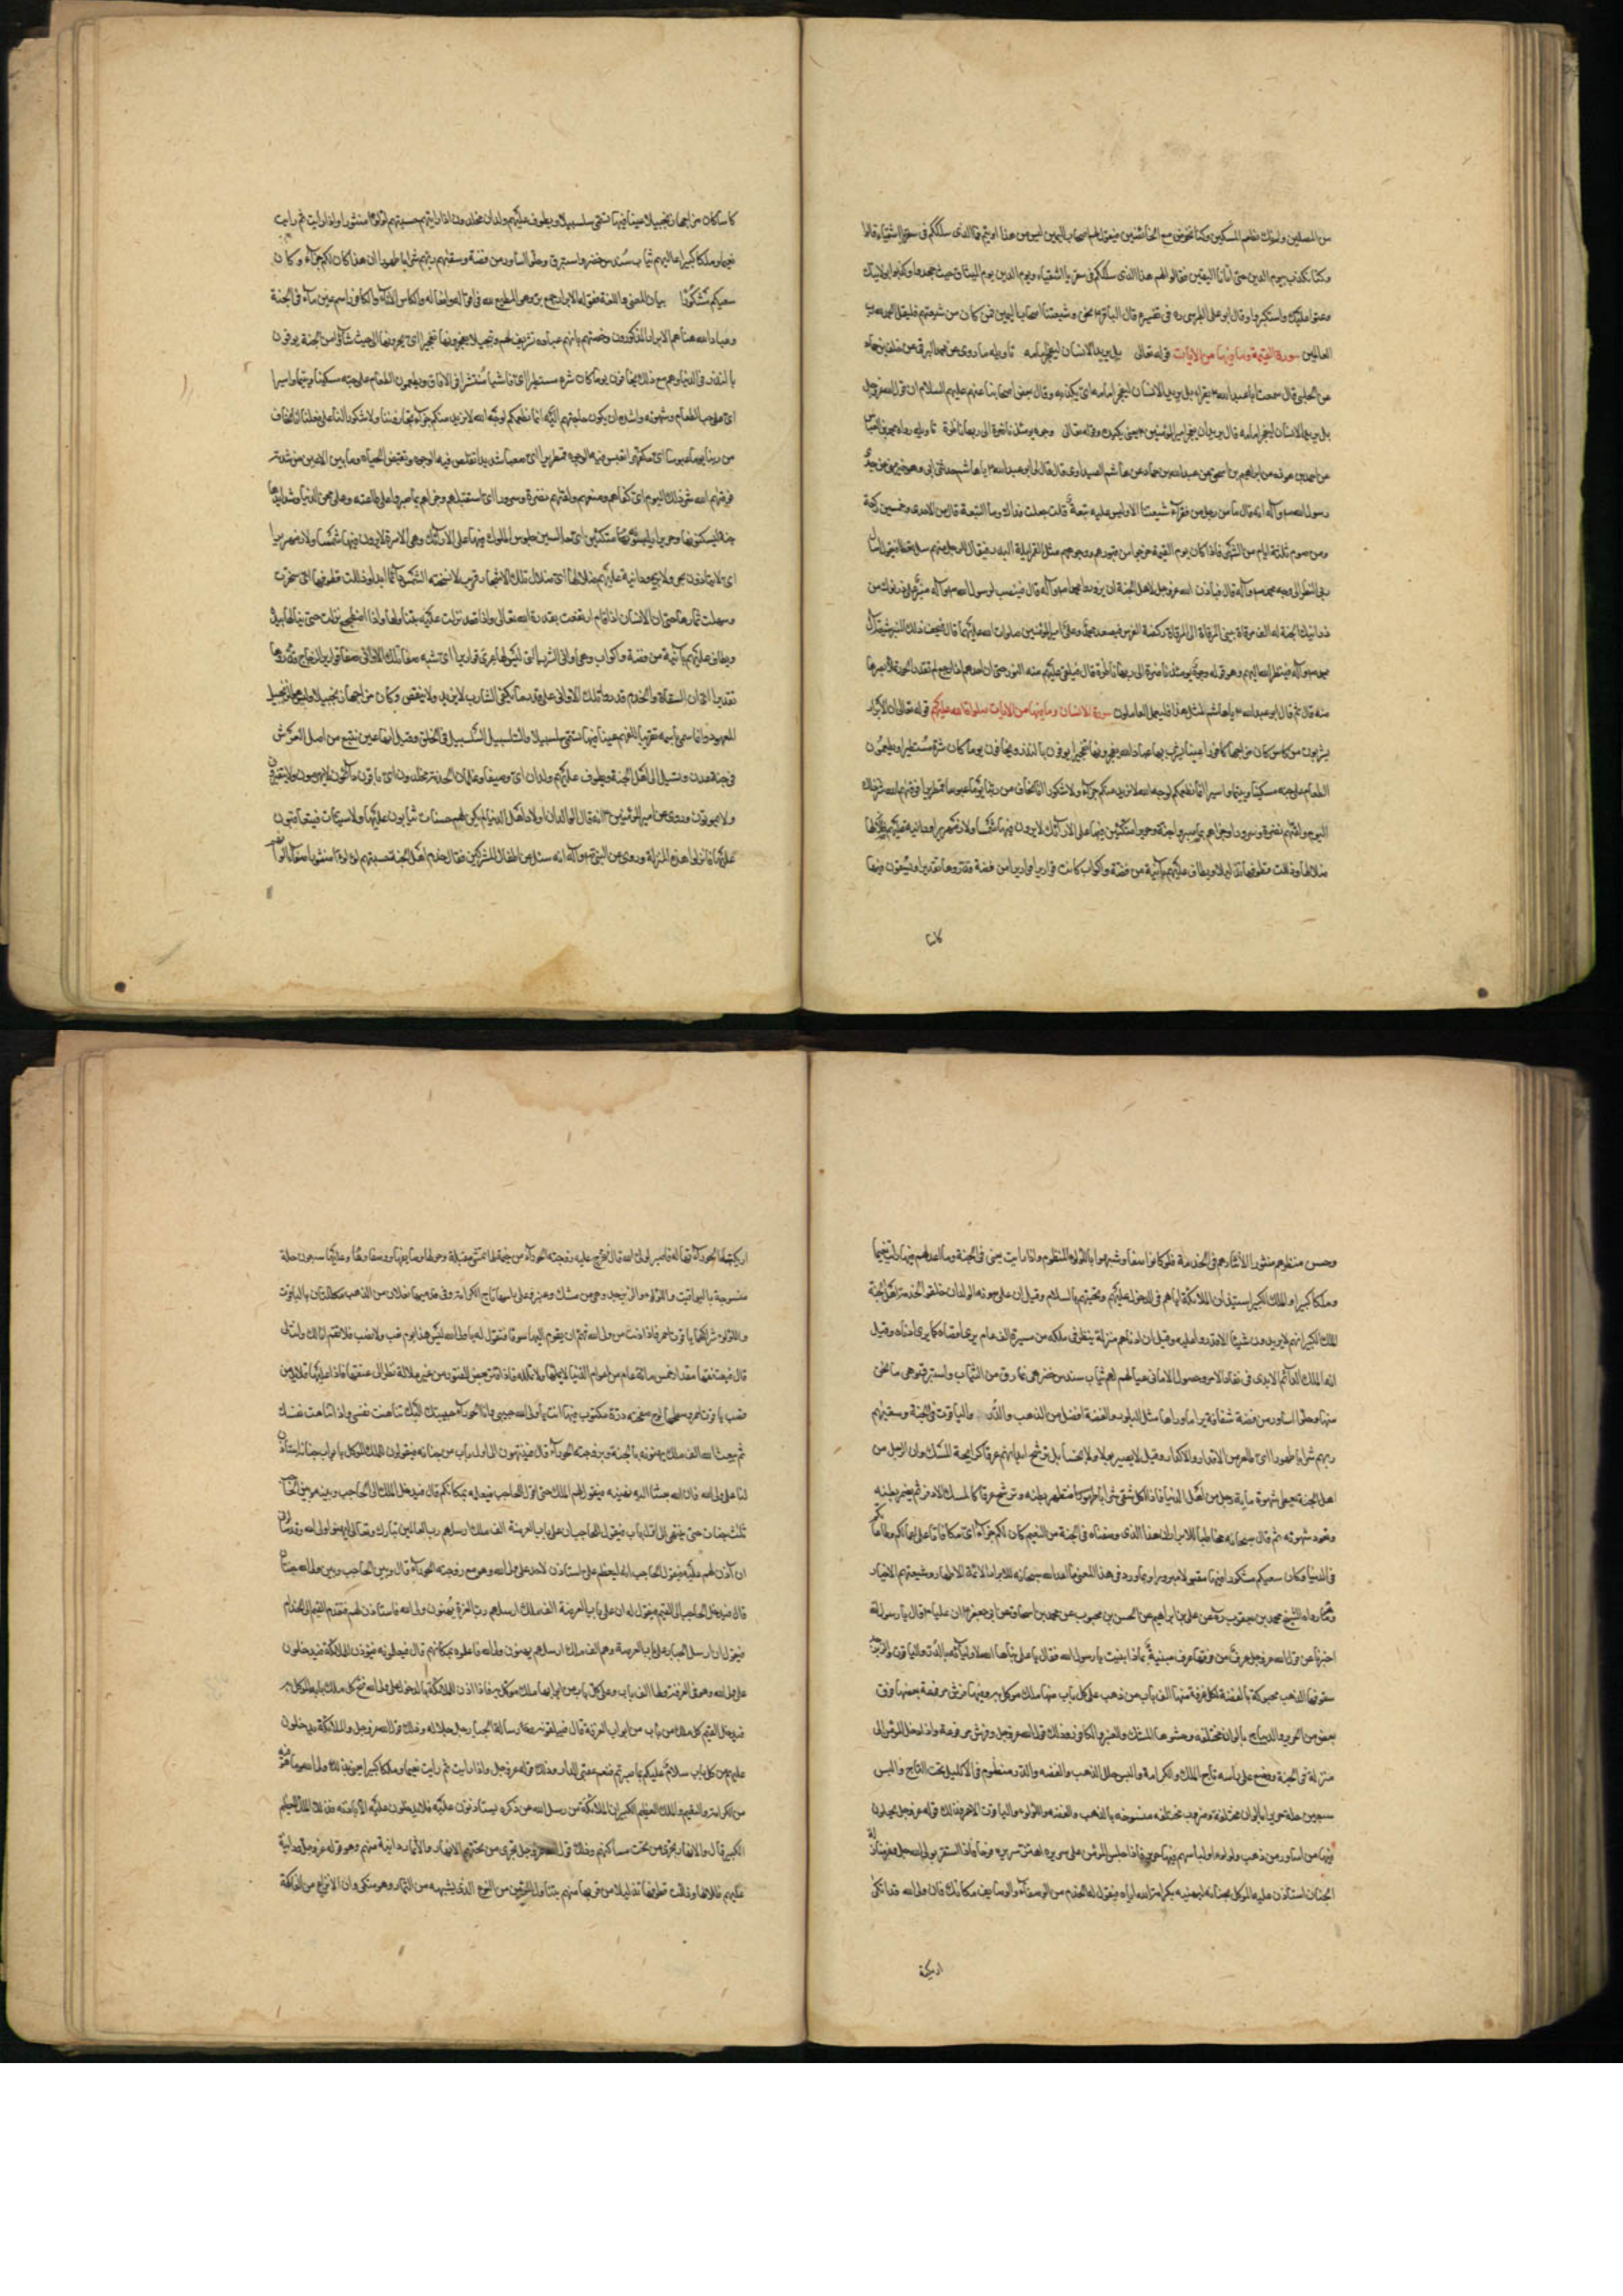 من المصلين ولم نك نطعم المسكين وكنا نخوض مع الخائضين فيقول لهم اصحاب اليمين ليس من هذا اوتيتم فما الذي سلككم في سقر يا اشقياء قالوا
وكنا نكذب بيوم الدين حتى اتانا اليقين فقالوا لهم هذا الذي سلككم في سقر يا اشقياء ويوم الدين يوم الميثاق حيث جحدوا وكذبوا بولايتك
وعتوا عليك واستكبروا وقال ابو على الطبرسى ره فى تفسيره قال الباقر ع نحن وشيعتنا اصحاب اليمين فمن كان من شيعتهم فليقل الحمد لله رب
العالمين سورة القيمة وما فيها من الايات قوله تعالى بل يريد الانسان ليفجر امامه تاويله ما روى عن محمد البرقى عن خلف بن حماد
عن الحلبى قال سمعت ابا عبد الله ع يقراء بل يريد الانسان ليفجر امامه اى يكذبه وقال بعض اصحابنا عنهم عليهم السلام ان قوله عز وجل
بل يريد الانسان ليفجر امامه قال يريد ان يفجر امير المؤمنين ع يعنى يكيده وقوله تعالى وجوه يومئذ ناضرة الى ربها ناظرة تاويله رواه محمد بن العباس
عن احمد بن هوذه عن ابراهيم بن اسحق عن عبد الله بن حماد عن هاشم الصيداوى قال قال لى ابو عبد الله ع يا هاشم حدثنى ابى وهو خير منى عن جدى
رسول الله ص وآله انه قال ما من رجل من فقرآء شيعتنا الا وليس عليه تبعة قلت جعلت فداك وما التبعة قال من الاحدى وخمسين ركعة
ومن صوم ثلاثة ايام من الشهر فاذا كان يوم القيمة خرجوا من قبورهم ووجوههم مثل القمر ليلة البدر فيقال للرجل منهم سل تعط فيقول اسأل
ربى النظر الى وجه محمد ص وآله قال فياذن الله عز وجل لاهل الجنة ان يزوروا محمدا ص وآله قال فينصب لرسول الله ص وآله منبر على درنوك من
درانيك الجنة له الف مرقاة بين المرقاة الى المرقاة ركضة الفرس فيصعد محمد وعلى امير المؤمنين صلوات الله عليهما قال فيحف ذلك المنبر شيعة آل
محمد ص وآله فينظر الله اليهم وهو قوله وجوه يومئذ ناضرة الى ربها ناظرة قال فيلقى عليهم منه النور حتى ان احدهم اذا رجع لم تقدر الحورآء تملا بصرها
منه قال ثم قال ابو عبد الله ع يا هاشم لمثل هذا فليعمل العاملون سورة الانسان وما فيها من الايات صلوات الله عليكم قوله تعالى ان الابرار
يشربون من كاس كان مزاجها كافورا عينا يشرب بها عباد الله يفجرونها تفجيرا يوفون بالنذر ويخافون يوما كان شره مستطيرا ويطعمون
الطعام على حبه مسكينا ويتيما واسيرا انما نطعمكم لوجه الله لا نريد منكم جزآء ولا شكورا انا نخاف من ربنا يوما عبوسا قمطريرا فوقيهم الله شر ذلك
اليوم ولقيهم نضرة وسرورا وجزاهم بما صبروا جنة وحريرا متكئين فيها على الارآئك لا يرون فيها شمسا ولا زمهريرا ودانية عليهم
ظلالها وذللت قطوفها تذليلا ويطاف عليهم بآنية من فضة واكواب كانت قواريرا قواريرا من فضة قدروها تقديرا ويسقون فيها
كاسا
كاسا كان مزاجها زنجبيلا عينا فيها تسمى سلسبيلا ويطوف عليهم ولدان مخلدون اذا رايتهم حسبتهم لؤلؤا منثورا واذا رايت ثم رايت
نعيما وملكا كبيرا عاليهم ثياب سندس خضر واستبرق وحلوا اساور من فضة وسقيهم ربهم شرابا طهورا ان هذا كان لكم جزآء وكان
سعيكم مشكورا بيان المعنى واللغة فقوله الابرار جمع بر وهو المطيع لله فى اقواله وافعاله والكاس الانآء والكافور اسم عين مآء فى الجنة
وعباد الله هنا هم الابرار المذكورون وخصهم بانهم عباده تشريفا لهم وتبجيلا يفجرونها تفجيرا اى يجرونها الى حيث شآؤا من الجنة يوفون
بالنذر فى الدنيا وهم مع ذلك يخافون يوما كان شره مستطيرا اى فاشيا منتشرا فى الافاق ويطعمون الطعام على حبه مسكينا ويتيما واسيرا
اى على حب الطعام وشهوته واشد ما يكون حاجتهم اليه انما نطعمكم لوجه الله لا نريد منكم جزآء
من ربنا يوما عبوسا اى مكفهرا تعبس فيه الوجوه قمطريرا اى صعبا شديدا تقلص فيه الوجوه وتقبض الجباه وما بين الاعين من شدته
فوقيهم الله شر ذلك اليوم اى كفاهم ومنعهم ولقيهم نضرة وسرورا اى استقبلهم وجزاهم بما صبروا على طاعته وعلى محن الدنيا وشدايدها
جنة يسكنونها وحريرا يلبسونه متكئين اى جالسين جلوس الملوك فيها على الارآئك وهى الاسرة لا يرون فيها شمسا ولا زمهريرا
اى لا يتاذون بحر ولا برد ودانية عليهم ظلالها اى ظلال تلك الاشجار قريب لا تنسخه الشمس دآئما ابدا وذللت قطوفها اى سخرت
وسهلت ثمارها حتى ان الانسان اذا قام ارتفعت بقدرة الله تعالى واذا قعد نزلت عليه يتناولها واذا اضطجع نزلت حتى ينالها بيده
ويطاف عليهم بآنية من فضة واكواب وهى اوانى الشرب التى ليس لها عرى قواريرا اى تشبه صفآء تلك الاوانى صفآء قوارير الزجاج قدروها
تقديرا اى ان السقاة والخدم قدروا تلك الاوانى على قدر ما يكفى الشارب لا يزيد ولا ينقص وكان مزاجها زنجبيلا
المعهود وانما سمى باسمه تقريبا للفهم عينا فيها تسمى سلسبيلا والسلسبيل السلس فى الحلق وقيل انها عين تنبع من اصل العرش
فى جنة عدن وتسيل الى اهل الجنة ويطوف عليهم ولدان اى وصيفا وغلمان الخدمة مخلدون اى باقون دآئمون لا يهرمون ولا يتغيرون
ولا يموتون وروى عن امير المؤمنين ع انه قال الولدان اولاد اهل الدنيا لم يكن لهم حسنات يثابون عليها ولا سيئات فيعاقبون
عليها فانزلوا هذه المنزلة وروى عن النبى ص وآله انه سئل عن اطفال المشركين فقال خدم اهل الجنة حسبتهم لؤلؤا منثورا
وحسن منظرهم منثورا لانتثارهم فى الخدمة فلو كانوا صفا وشبهوا باللؤلؤ المنظوم واذا رايت يعنى فى الجنة وما اعد لهم فيها رايت نعيما
وملكا كبيرا والملك الكبير استيذان الملائكة اياهم فى الدخول عليهم وتحيتهم بالسلام وقيل ان
الملك الكبير انهم لا يريدون شيئا الا قدروا عليه وقيل ان ادناهم منزلة ينظر فى ملكه من مسيرة الف عام يرى اقصاه كما يرى ادناه وقيل
انه الملك الدآئم الابدى فى نفاذ الامر وحصول الامانى عاليهم ثياب سندس خضر هى ما رق من الثياب واستبرق وهى ما ثخن
منها وحلوا اساور من فضة شفافة يرا ما ورآءها مثل البلور والفضة افضل من الذهب والدر والياقوت فى الجنة وسقيهم
ربهم شرابا طهورا اى طاهر من الاقذار والاكدار وقيل لا يصير بولا ولا نجسا بل ترشح ابدانهم عرقا كرايحة المسك وان الرجل من
اهل الجنة يعطى شهوة ماية رجل من اهل الدنيا فاذا اكل سقى شرابا طهورا فتطهر بطنه وترشح عرقا كالمسك الاذفر ثم يضمر بطنه
وتعود شهوته ثم قال سبحانه مخاطبا للابرار ان هذا الذى وصفناه فى الجنة من النعيم كان لكم جزآء اى مكافاة على
فى الدنيا وكان سعيكم مشكورا وما ورد فى هذا المعنى مما اعد الله سبحانه للابرار الائمة الاطهار وشيعتهم الاخيار
ما رواه الشيخ محمد بن يعقوب ره عن على بن ابراهيم عن الحسن بن محبوب عن محمد بن اسحاق عن ابى جعفر ع ان عليا ع قال يا رسول الله
اخبرنا عن قول الله عز وجل غرف من فوقها غرف مبنية بماذا بنيت يا رسول الله فقال يا على بناها الله لاوليآئه بالدر والياقوت والزبرجد
سقوفها الذهب محبوكة بالفضة لكل غرفة منها الف باب من ذهب على كل باب منها ملك موكل به وفيها فرش مرفوعة بعضها فوق
بعض من الحرير والديباج بالوان مختلفة وحشوها المسك والعنبر والكافور وذلك قول الله عز وجل وفرش مرفوعة واذا دخل المؤمن الى
منزلة فى الجنة وضع على راسه تاج الملك والكرامة والبس حلل الذهب والفضه والدر منظوم فى الاكليل تحت التاج والبس
سبعين حلة حرير بالوان مختلفة وضروب مختلفه منسوجه بالذهب والفضه واللؤلؤ والياقوت الاحمر وذلك قوله عز وجل يحلون
فيها من اساور من ذهب ولؤلؤا ولباسهم فيها حرير فاذا جلس المؤمن على سريره اهتز سريره فرحا فاذا استقر بولى الله جل وعز منازله
الجنان استاذن عليه الموكل بجنانه ليهنيه بكرامة الله اياه فيقول له الخدم من الوصفآء والوصايف مكانك فان ولى الله قد اتكى
اريكته
منسوجة بالياقوت واللؤلؤ والزبرجد وهى من مسك وعنبر وعلى راسها تاج الكرامة وفى قدميها نعلان من الذهب مكللتان بالياقوت
واللؤلؤ شراكهما ياقوت احمر فاذا دنت من ولى الله فهم ان يقوم اليها شوقا فتقول له يا ولى الله ليس هذا يوم تعب ولا نصب فلا تقم انا لك وانت لى
قال فيعتنقها مقدار خمس مائة عام من اعوام الدنيا لا يملها ولا تمله فاذا فتر بعض الفتور من غير ملالة نظر الى عنقها فاذا عليها قلايد من
قصب ياقوت احمر وسطها لوح صفحته درة مكتوب فيها انت يا ولى الله حبيبى وانا الحورآء حبيبتك اليك تناهت نفسى والى تناهت نفسك
ثم يبعث الله الف ملك يهنونه بالجنة ويزوجونه بالحورآء قال فينتهون الى اول باب من جنانه فيقولون للملك الموكل بابواب جنانه استاذن
لنا على ولى الله فان الله بعثنا اليه نهنيه فيقول لهم الملك حتى اقول للحاجب فيعلمه بمكانكم قال فيدخل الملك الى الحاجب وبينه وبين الحاجب
ثلث جنات حتى ينتهى الى اول باب فيقول للحاجب ان على باب العرصة الف ملك ارسلهم رب العالمين تبارك وتعالى ليهنوا ولى الله وقد سألونى
ان آذن لهم عليه فيقول الحاجب انه ليعظم على ان استاذن لاحد على ولى الله وهو مع زوجته الحورآء قال وبين الحاجب وبين ولى الله جنتان
قال فيدخل الحاجب الى القيم فيقول له ان على باب العرصة الف ملك ارسلهم رب العزة يهنون ولى الله فاستاذن لهم فيتقدم القيم الى الخدام
فيقول ان رسل الجبار على باب العرصة وهم الف ملك ارسلهم يهنون ولى الله فاعلموه بمكانهم قال فيعلمونه فيؤذن للملائكة فيدخلون
على ولى الله وهو فى الغرفة ولها الف باب وعلى كل باب من ابوابها ملك موكل به فاذا اذن للملائكة بالدخول على ولى الله فتح كل ملك بابه الموكل به
فيدخل القيم كل ملك من باب من ابواب الغرفة قال فيبلغونه رسالة الجبار جل جلاله وذلك قول الله عز وجل والملائكة يدخلون
عليهم من كل باب سلام عليكم بما صبرتم فنعم عقبى الدار وذلك قوله عز وجل واذا رايت ثم رايت نعيما وملكا كبيرا يعنى بذلك ولى الله وما هو فيه
من الكرامة والنعيم والملك العظيم الكبير ان الملائكة من رسل الله عز ذكره يستاذنون عليه فلا يدخلون عليه الا باذنه فذلك الملك العظيم
الكبير قال والانهار تجرى من تحت مساكنهم وذلك قول الله عز وجل تجرى من تحتهم الانهار والثمار دانية منهم وهو قوله عز وجل ودانية
عليهم ظلالها وذللت قطوفها تذليلا من قربها منهم يتناول المؤمن من النوع الذى يشتهيه من الثمار وهو متكئ وان الانواع من الفاكهة